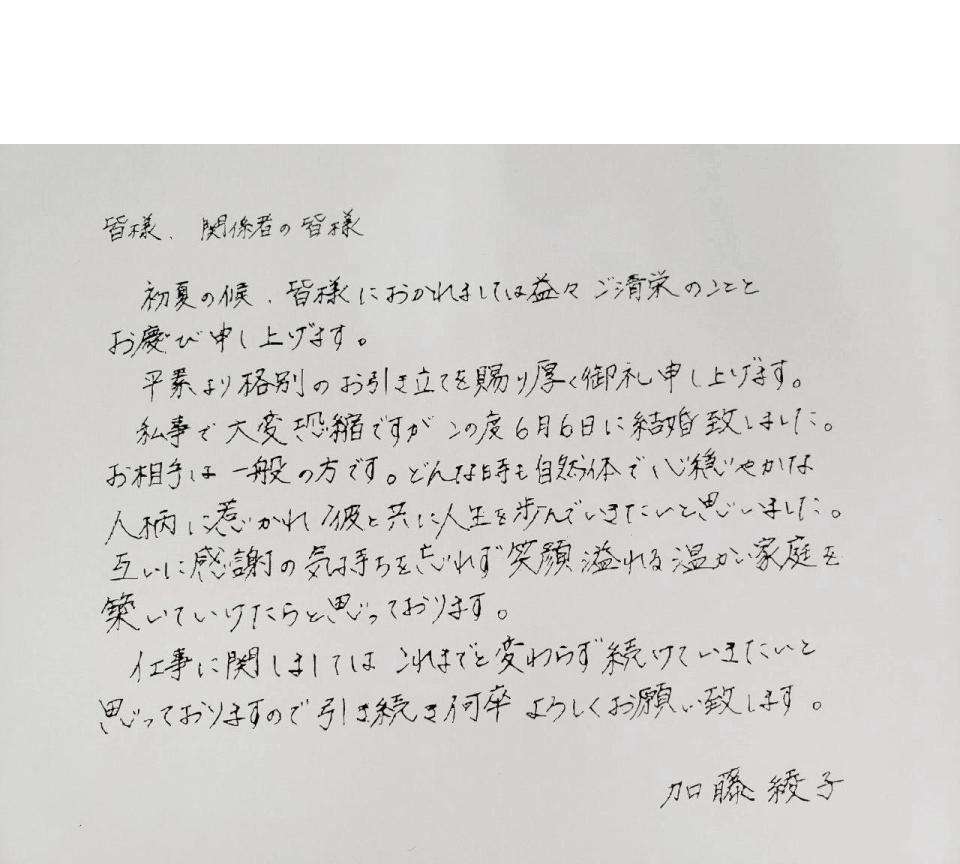 皆様、関係者の皆様
初夏の候、皆様におかれましては益々ご清栄のこと
お慶び申し上げます。
平素より格別のお引き立てを賜り厚く御礼申し上げます。
私事で大変恐縮ですがこの度6月6日に結婚致しました。
お相手は一般の方です。どんな時も自然体で心穏やかな
人柄に惹かれ彼と共に人生を歩んでいきたいと思いました。
互いに感謝の気持ちを忘れず笑顔溢れる温かい家庭を
築いていけたらと思っております。
仕事に関しましてはこれまでと変わらず続けていきたいと
思っておりますので引き続き何卒よろしくお願い致します。
加藤綾子